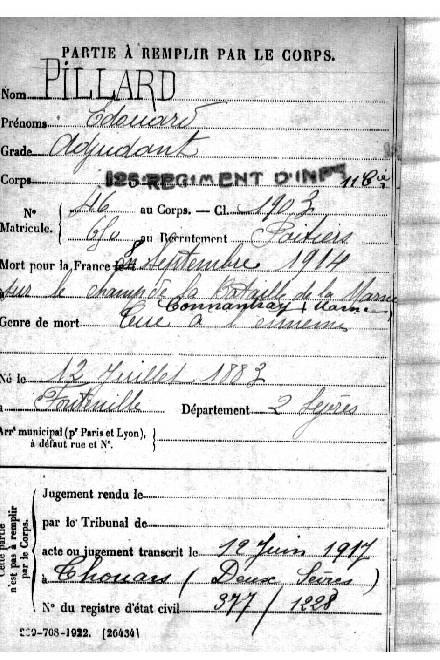 PARTIE À REMPLIR PAR LE CORPS.
Nom PILLARD
Prénoms Edouard
Grade Adjudant
Corps 125 REGIMENT D'INF 118e
N° 46 au Corps. — Cl. 1903
Matricule. au Recrutement Poitiers
Mort pour la France le En Septembre 1914
sur le champ de la Bataille de la Marne
Connantray (Marne)
Genre de mort Tué à l'ennemi
Né le 12 Juillet 1883
à Département 2 Sèvres
Arrt municipal (pr Paris et Lyon),
à défaut rue et N°.
Cette partie n'est pas à remplir par le Corps.
Jugement rendu le
par le Tribunal de
acte ou jugement transcrit le 12 Juin 1917
à Thouars (Deux Sèvres)
N° du registre d'état civil 377/1228
-708-1922. [26434]